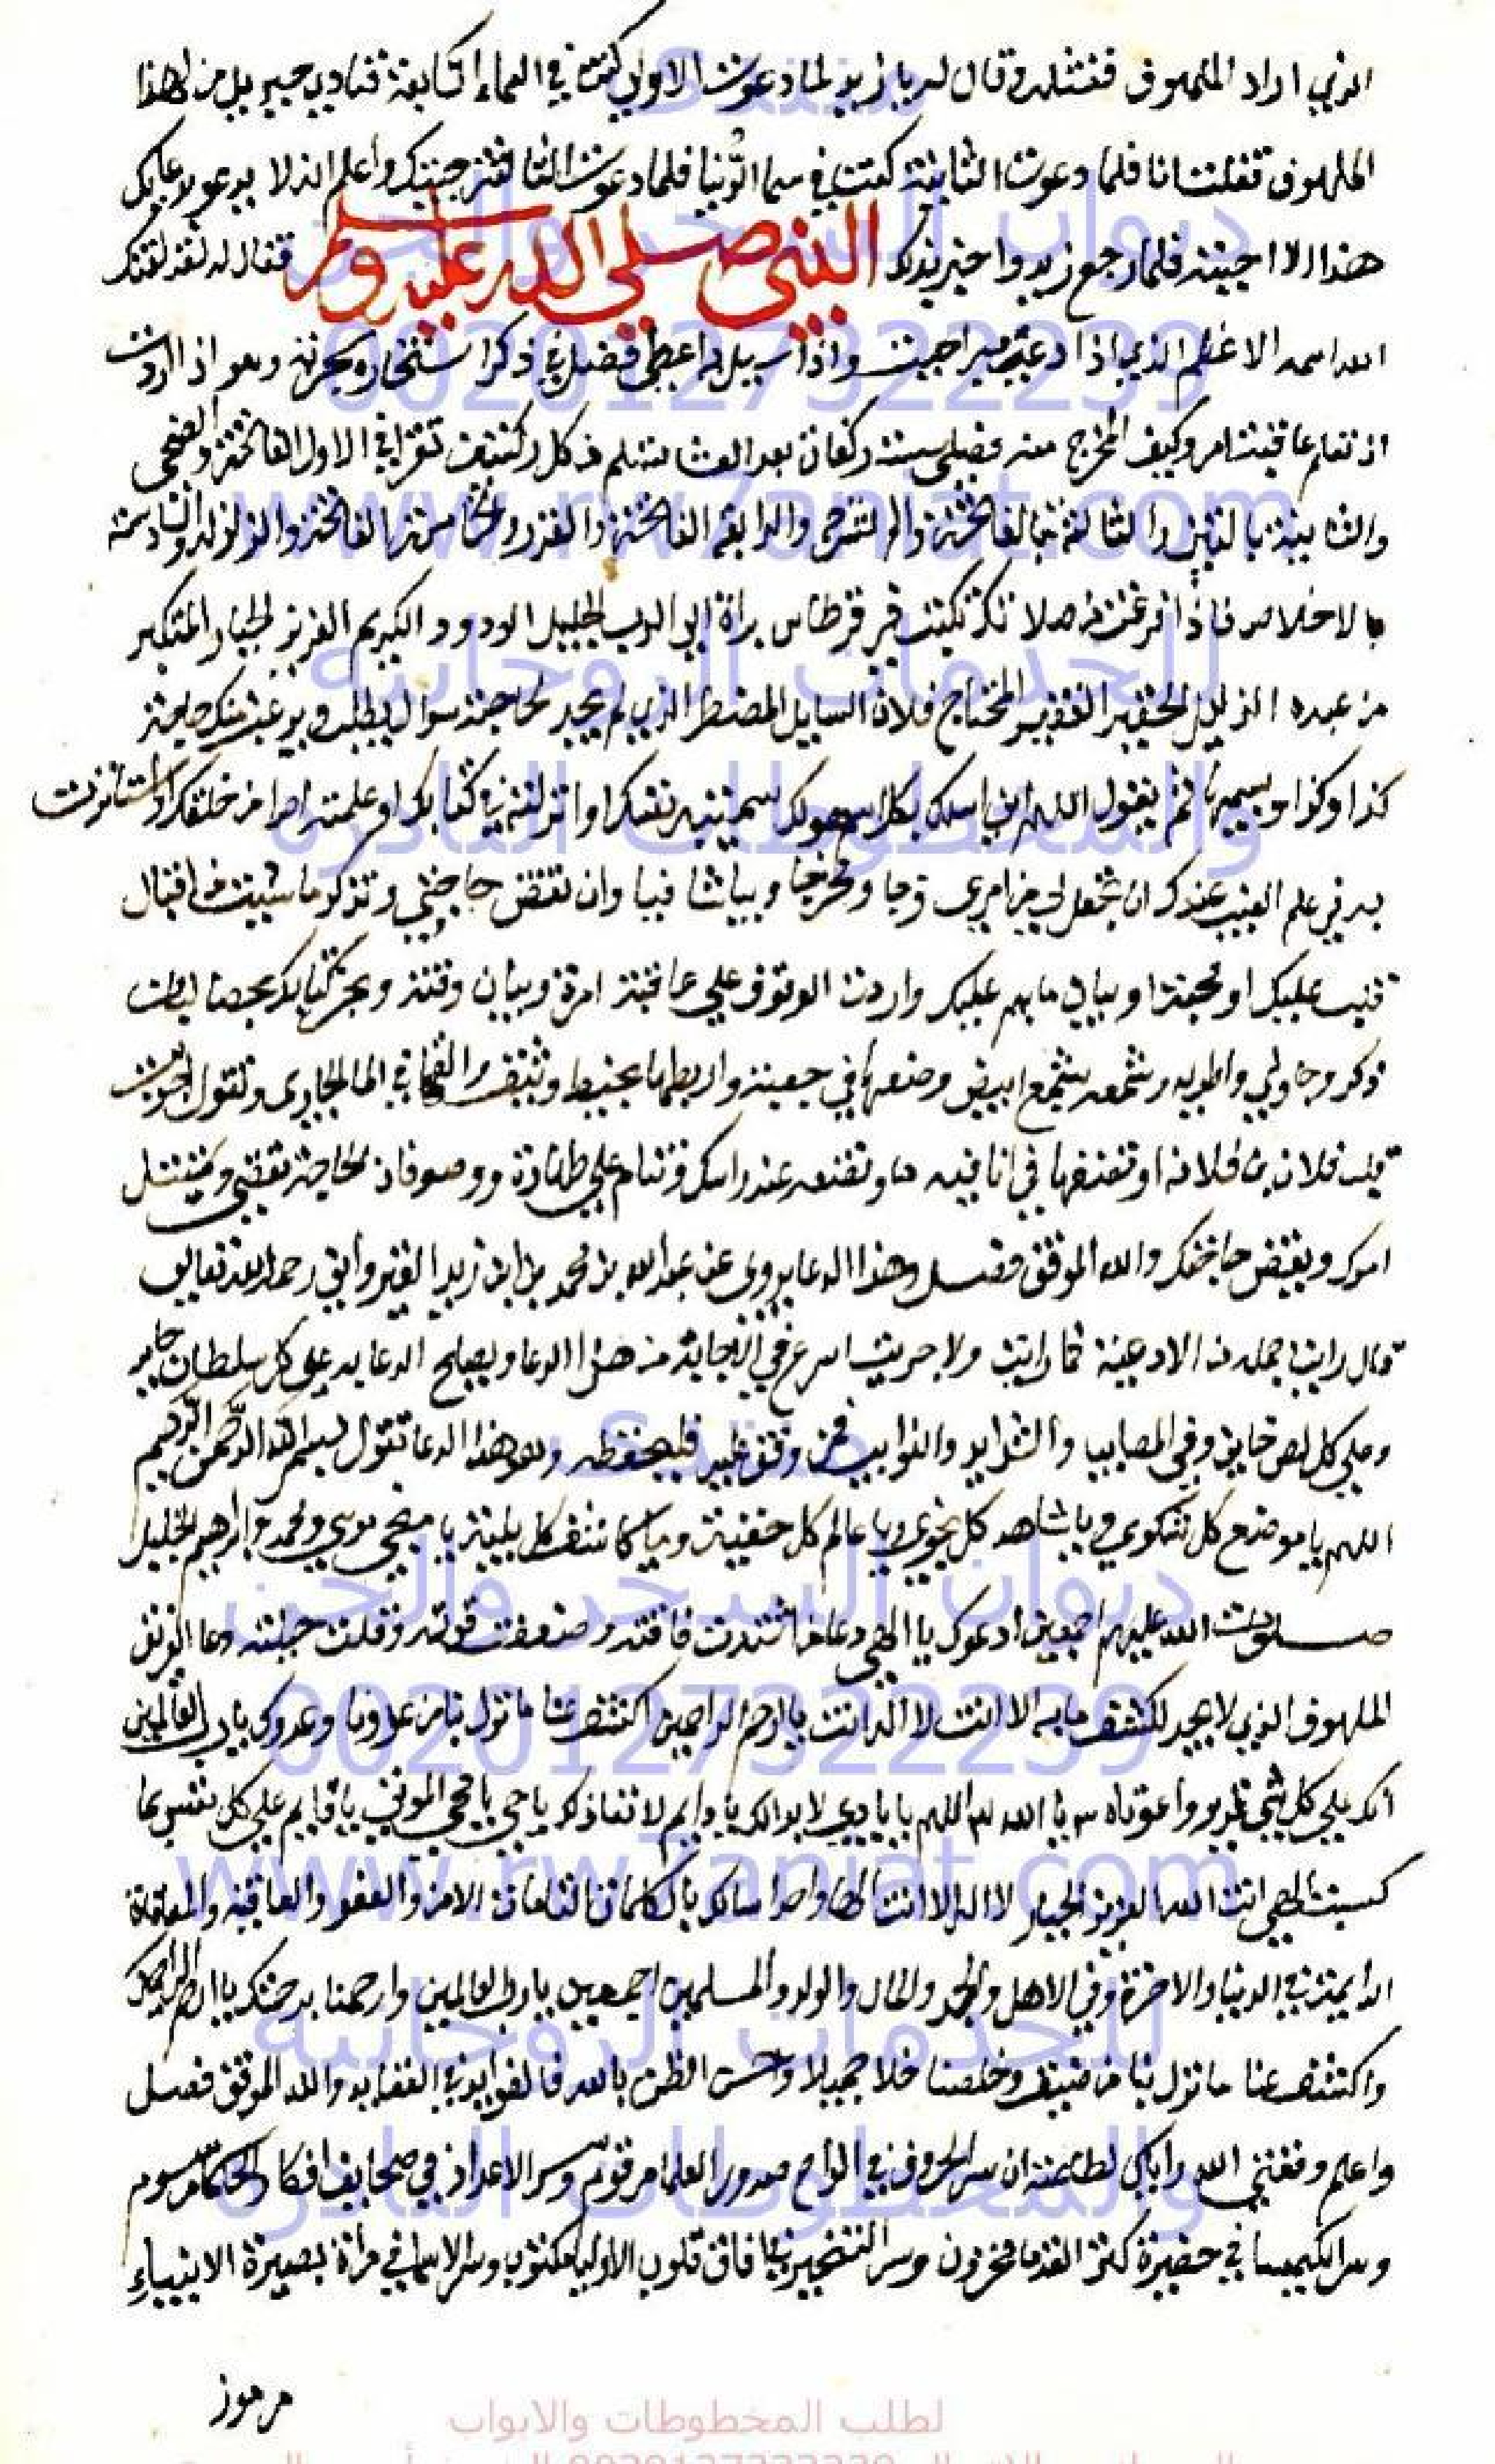 الذي اراد الملهوف فقتله وقال له يا زيد لما دعوت الاولي كنت في السماء السابعة فنادي جبريل من لهذا
الملهوف فقلت انا فلما دعوت الثانية كنت في سما الدنيا فلما دعوت الثالثة جيتك واعلم انه لا يدعو بدعايك
هذا الا اجيبته فلما رجع زيد واخبر بذلك النبي صلي الله عليه وسلم فقال له لقد لقنك
الله اسمه الاعظم الذي اذا دعي به اجيب واذا سيل به اعطي فصل في ذكر استخاره مجربة وهو اذا اردت
ان تعلم عاقبة امر وكيف المخرج منه فصلي ستة ركعات بعد العشا تسلم من كل ركعتين تقرا في الاول الفاتحة والضحي
والثانية بالتين والثالثة بالفاتحة والم نشرح والرابعة الفاتحة والقدر والخامسة الفاتحة والزلزله والسادسة
بالاخلاص فاذا فرغت من صلاتك تكتب في قرطاس براة الي الرب الجليل الودود الكريم العزيز الجبار المتكبر
من عبده الذليل الحقير الفقير المحتاج فلان السايل المضطر الذي لم يجد لحاجته سواك يطلب ويرغب منك حاجة
كذا وكذا ويسميها ثم يقول اللهم اني اسالك بكل اسم هو لك سميت به نفسك او انزلته في كتابك او علمته احدا من خلقك او استاثرت
به في علم الغيب عندك ان تجعل لي من امري فرجا ومخرجا وبيانا شافيا وان تقض حاجتي وتذكر ما شيت من اقبال
قلب عليك او محبة او بيان ما بهم عليك واردت الوقوف علي عاقبة امره وبيان وقته
ذكر واطويه وشمعه بشمع ابيض وضعها في عجينه واربطها بخيط والقها في الما الجاري وتقول
قلب فلان بن فلانه او تضعها في انا فيه ما وتضعه عند راسك وتنام علي طهارة ووضو فان الحاجة تقضي
امرك ويقض حاجتك والله الموفق فصل وهذا الدعا يروي عن عبد الله بن محمد بن ابي زيد القيرواني رحمه الله تعالي
قال رايت جمله من الادعية فما رايت ولا جربت اسرع في الاجابة من هذا الدعا ويصلح الدعا به علي كل سلطان جاير
وعلي كل لص خاين وفي المصايب والشدايد والنوايب فمن وقف عليه فليحفظه وهو هذا الدعا تقول بسم الله الرحمن الرحيم
اللهم يا موضع كل شكوي ويا شاهد كل نجوي ويا عالم كل خفية ويا كاشف كل بلية يا منجي موسي ومحمد وابراهيم الخليل
صلوات الله عليهم اجمعين ادعوك يا الهي دعا من اشتدت فاقته وضعفت قوته وقلت حيلته دعا الغريق
الملهوف الذي لا يجد لكشف ما به الا انت لا اله الا انت يا ارحم الراحمين اكشف عنا ما نزل بنا من عدونا وعدوك يا رب العالمين
انك علي كل شي قدير واغوثاه يا الله اللهم يا بادي لا بداية لك يا دايم لا نفاذ لك يا حي يا محي الموتي يا قايم علي كل نفس بما
كسبت الهي انت الله العزيز الجبار لا اله الا انت الها واحدا اسالك بالكلمات التامات الامن والعفو والعافية والمعافاة
الدايمة في الدنيا والاخرة وفي الاهل والمال والولد والمسلمين اجمعين يا رب العالمين وارحمنا برحمتك يا ارحم الراحمين
واكشف عنا ما نزل بنا من ضيق وخلصنا خلاصا جميلا واحسن الظن بالله فالفوايد في العقايد والله الموفق فصل
واعلم وفقني الله واياك لطاعته ان سر الحروف في الواح صدور العلما مرقوم وسر الاعداد في صحايف افكار الحكما مرسوم
وسر الكيميا في حضيرة كنز القدما مخزون وسر التسخير في افاق قلوب الاوليا مكنون وسر الاسما في مراة بصيرة الانبياء
مرموز
منتدى
ديوان السحر والجن
0020127322239
www.rw7aniat.com
للخدمات الروحانية
والمخطوطات النادرة
منتدى
ديوان السحر والجن
0020127322239
www.rw7aniat.com
للخدمات الروحانية
والمخطوطات النادرة
لطلب المخطوطات والابواب